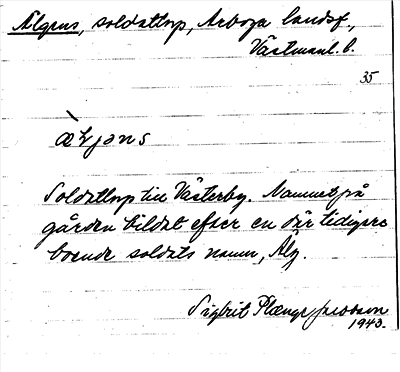 Älgens, soldattorp, Arboga landsf.,
Västmanl. l.
35
æljəns
Soldattorp till Västerby. Namnet på
gården bildat efter en där tidigare
boende soldats namn, Älg.
Sigbrit Plænge Jacobson
1943.